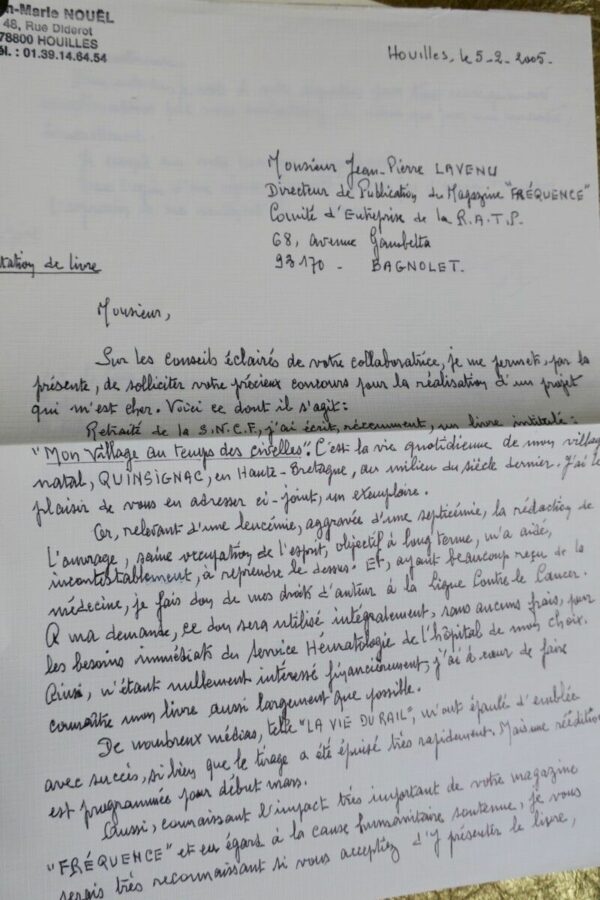 n-Marie NOUËL
48, Rue Diderot
78800 HOUILLES
él. : 01.39.14.64.54
Houilles, le 5-2-2005-
Monsieur Jean-Pierre LAVENU
Directeur de Publication du Magazine "FRÉQUENCE"
Comité d'Entreprise de la R.A.T.P.
68, avenue Gambetta
93170 - BAGNOLET.
tation de livre
Monsieur,
Sur les conseils éclairés de votre collaboratrice, je me permets, par la
présente, de solliciter votre précieux concours pour la réalisation d'un projet
qui m'est cher. Voici ce dont il s'agit:
Retraité de la S.N.C.F, j'ai écrit, récemment, un livre intitulé:
"Mon village au temps des civelles". C'est la vie quotidienne de mon villag
natal, QUINSIGNAC, en Haute-Bretagne, au milieu du siècle dernier. J'ai le
plaisir de vous en adresser ci-joint, un exemplaire.
Or, relevant d'une leucémie, aggravée d'une septicémie, la rédaction de
L'ouvrage, saine occupation de l'esprit, objectif à long terme, m'a aidé,
incontestablement, à reprendre le dessus. Et, ayant beaucoup reçu de la
médecine, je fais don de mes droits d'auteur à la Ligue Contre le Cancer.
A ma demande, ce don sera utilisé intégralement, sans aucuns frais, pour
les besoins immédiats du service Hématologie de l'hôpital de mon choix.
Ainsi, n'étant nullement intéressé financièrement, j'ai à cœur de faire
connaître mon livre aussi largement que possible.
De nombreux médias, telle "LA VIE DU RAIL", m'ont épaulé d'emblée
avec succès, si bien que le tirage a été épuisé très rapidement. Mais une réédition
est programmée pour début mars.
Aussi, connaissant l'impact très important de votre magazine
"FRÉQUENCE" et en égard à la cause humanitaire soutenue, je vous
serais très reconnaissant si vous acceptiez d'y présenter le livre,